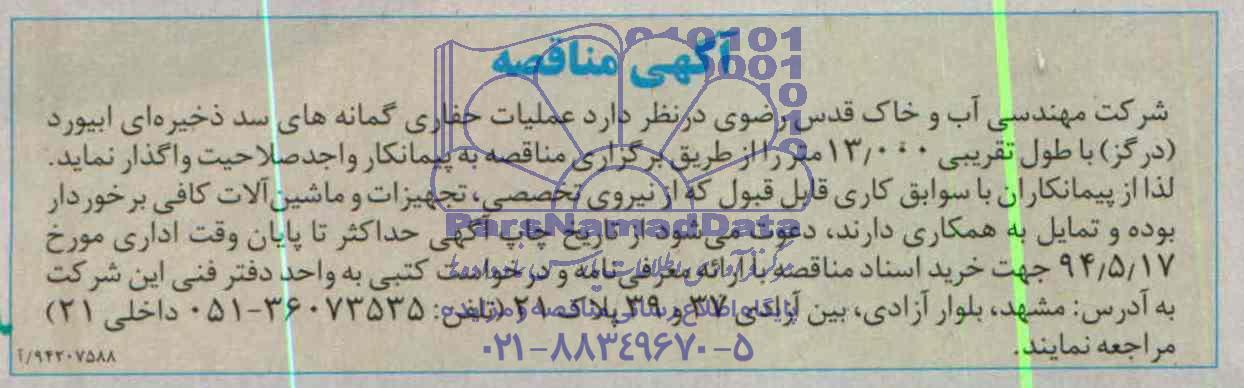 آگهی مناقصه
شرکت مهندسی آب و خاک قدس رضوی درنظر دارد عملیات حفاری گمانه های سد ذخیره‌ای ابیورد
(درگز) با طول تقریبی ۱۳٫۰۰۰ متر را از طریق برگزاری مناقصه به پیمانکار واجدصلاحیت واگذار نماید.
لذا از پیمانکاران با سوابق کاری قابل قبول که از نیروی تخصصی، تجهیزات و ماشین‌آلات کافی برخوردار
بوده و تمایل به همکاری دارند، دعوت می‌شود از تاریخ چاپ آگهی حداکثر تا پایان وقت اداری مورخ
ParsNamadData
۹۴٫۵٫۱۷ جهت خرید اسناد مناقصه با ارائه معرفی‌نامه و درخواست کتبی به واحد دفتر فنی این شرکت
به آدرس: مشهد، بلوار آزادی، بین آزادی ۳۷ و ۳۹ پلاک ۲۱ (تلفن: ۳۶۰۷۳۵۳۵-۰۵۱ داخلی ۲۱)
پایگاه اطلاع رسانی مناقصه و مزایده
مراجعه نمایند.
۰۲۱-۸۸۳۴۹۶۷۰-۵
۹۴۲۰۷۵۸۸/آ